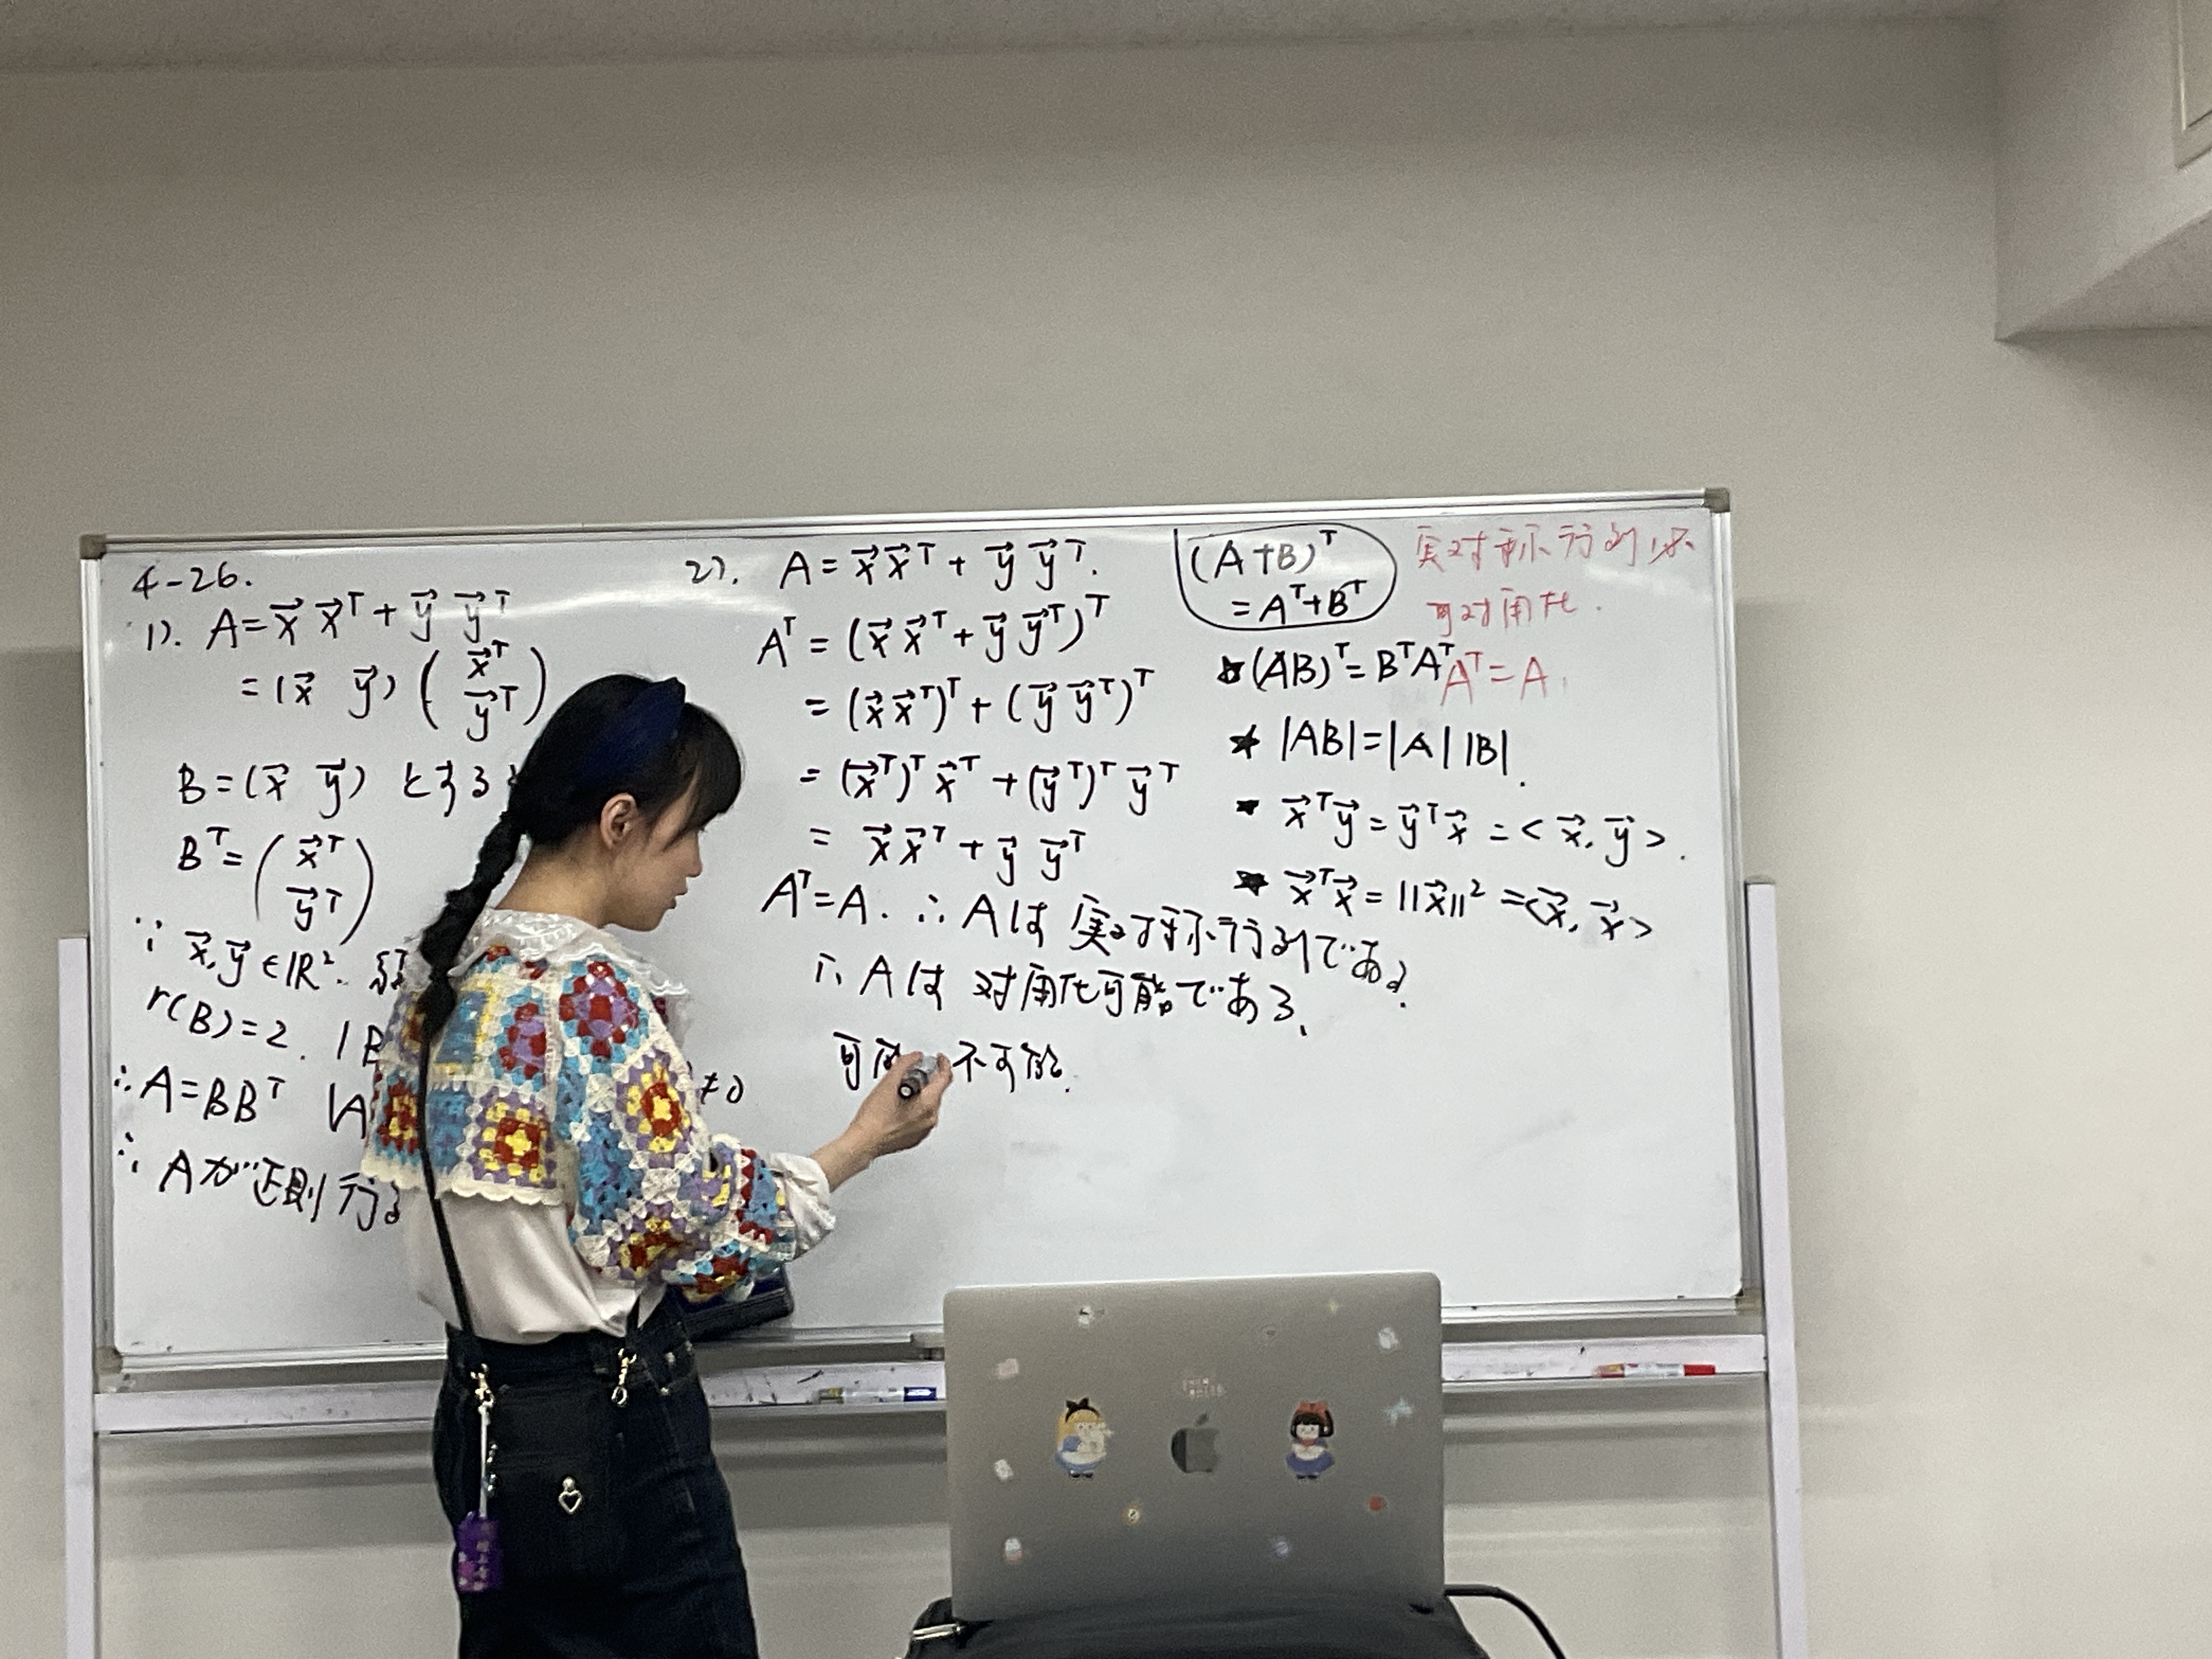 4-26.
1). A = x⃗ x⃗ᵀ + y⃗ y⃗ᵀ
= (x⃗ y⃗) ( x⃗ᵀ
y⃗ᵀ )
B = (x⃗ y⃗) とする
Bᵀ = ( x⃗ᵀ
y⃗ᵀ )
∵ x⃗, y⃗ ∈ ℝ².
r(B) = 2. |B
∴ A = BBᵀ |A ≠0
∴ Aが正則行
2). A = x⃗ x⃗ᵀ + y⃗ y⃗ᵀ.
Aᵀ = (x⃗ x⃗ᵀ + y⃗ y⃗ᵀ)ᵀ
= (x⃗ x⃗ᵀ)ᵀ + (y⃗ y⃗ᵀ)ᵀ
= (x⃗ᵀ)ᵀ x⃗ᵀ + (y⃗ᵀ)ᵀ y⃗ᵀ
= x⃗ x⃗ᵀ + y⃗ y⃗ᵀ
Aᵀ = A. ∴ Aは 実対称行列である.
∴ Aは 対角化可能である、
可 不可能.
(A+B)ᵀ
= Aᵀ+Bᵀ
★ (AB)ᵀ = BᵀAᵀ
★ |AB| = |A| |B|.
★ x⃗ᵀy⃗ = y⃗ᵀx⃗ = < x⃗, y⃗ >.
★ x⃗ᵀx⃗ = ||x⃗||² = <x⃗, x⃗>
实对称行列必
可对角化.
Aᵀ = A.